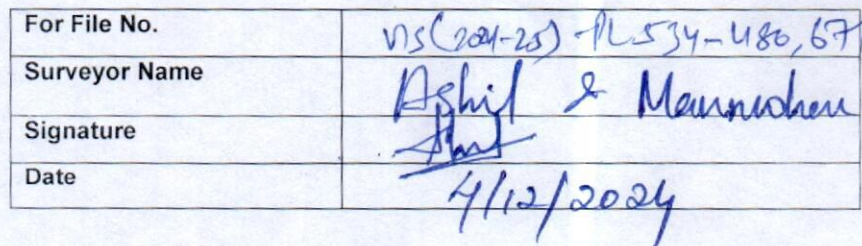 For File No. VIS(2024-25)-PL534-480,67
Surveyor Name Ashif & Manmohan
Signature
Date 4/12/2024